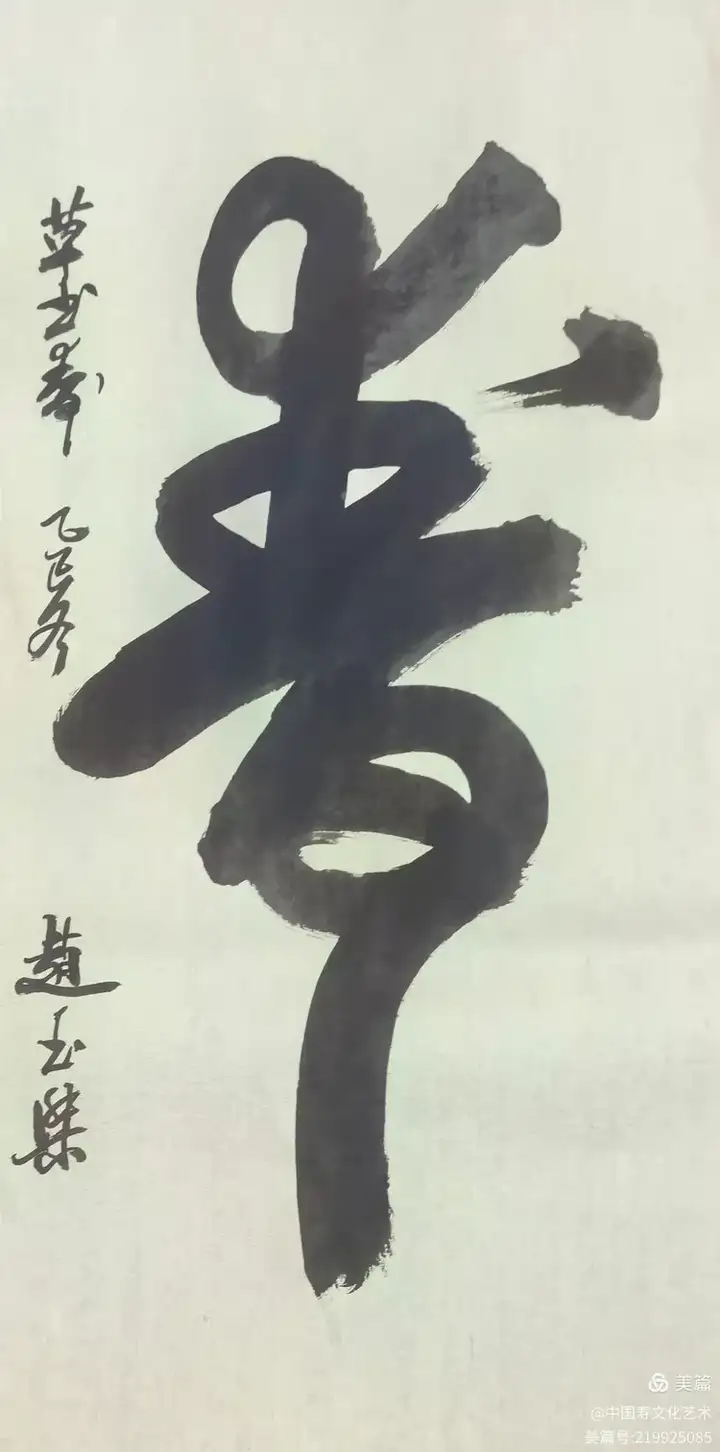 寿
草书寿 乙巳冬
趙玉
美篇
@中国寿文化艺术
美篇号:219925085